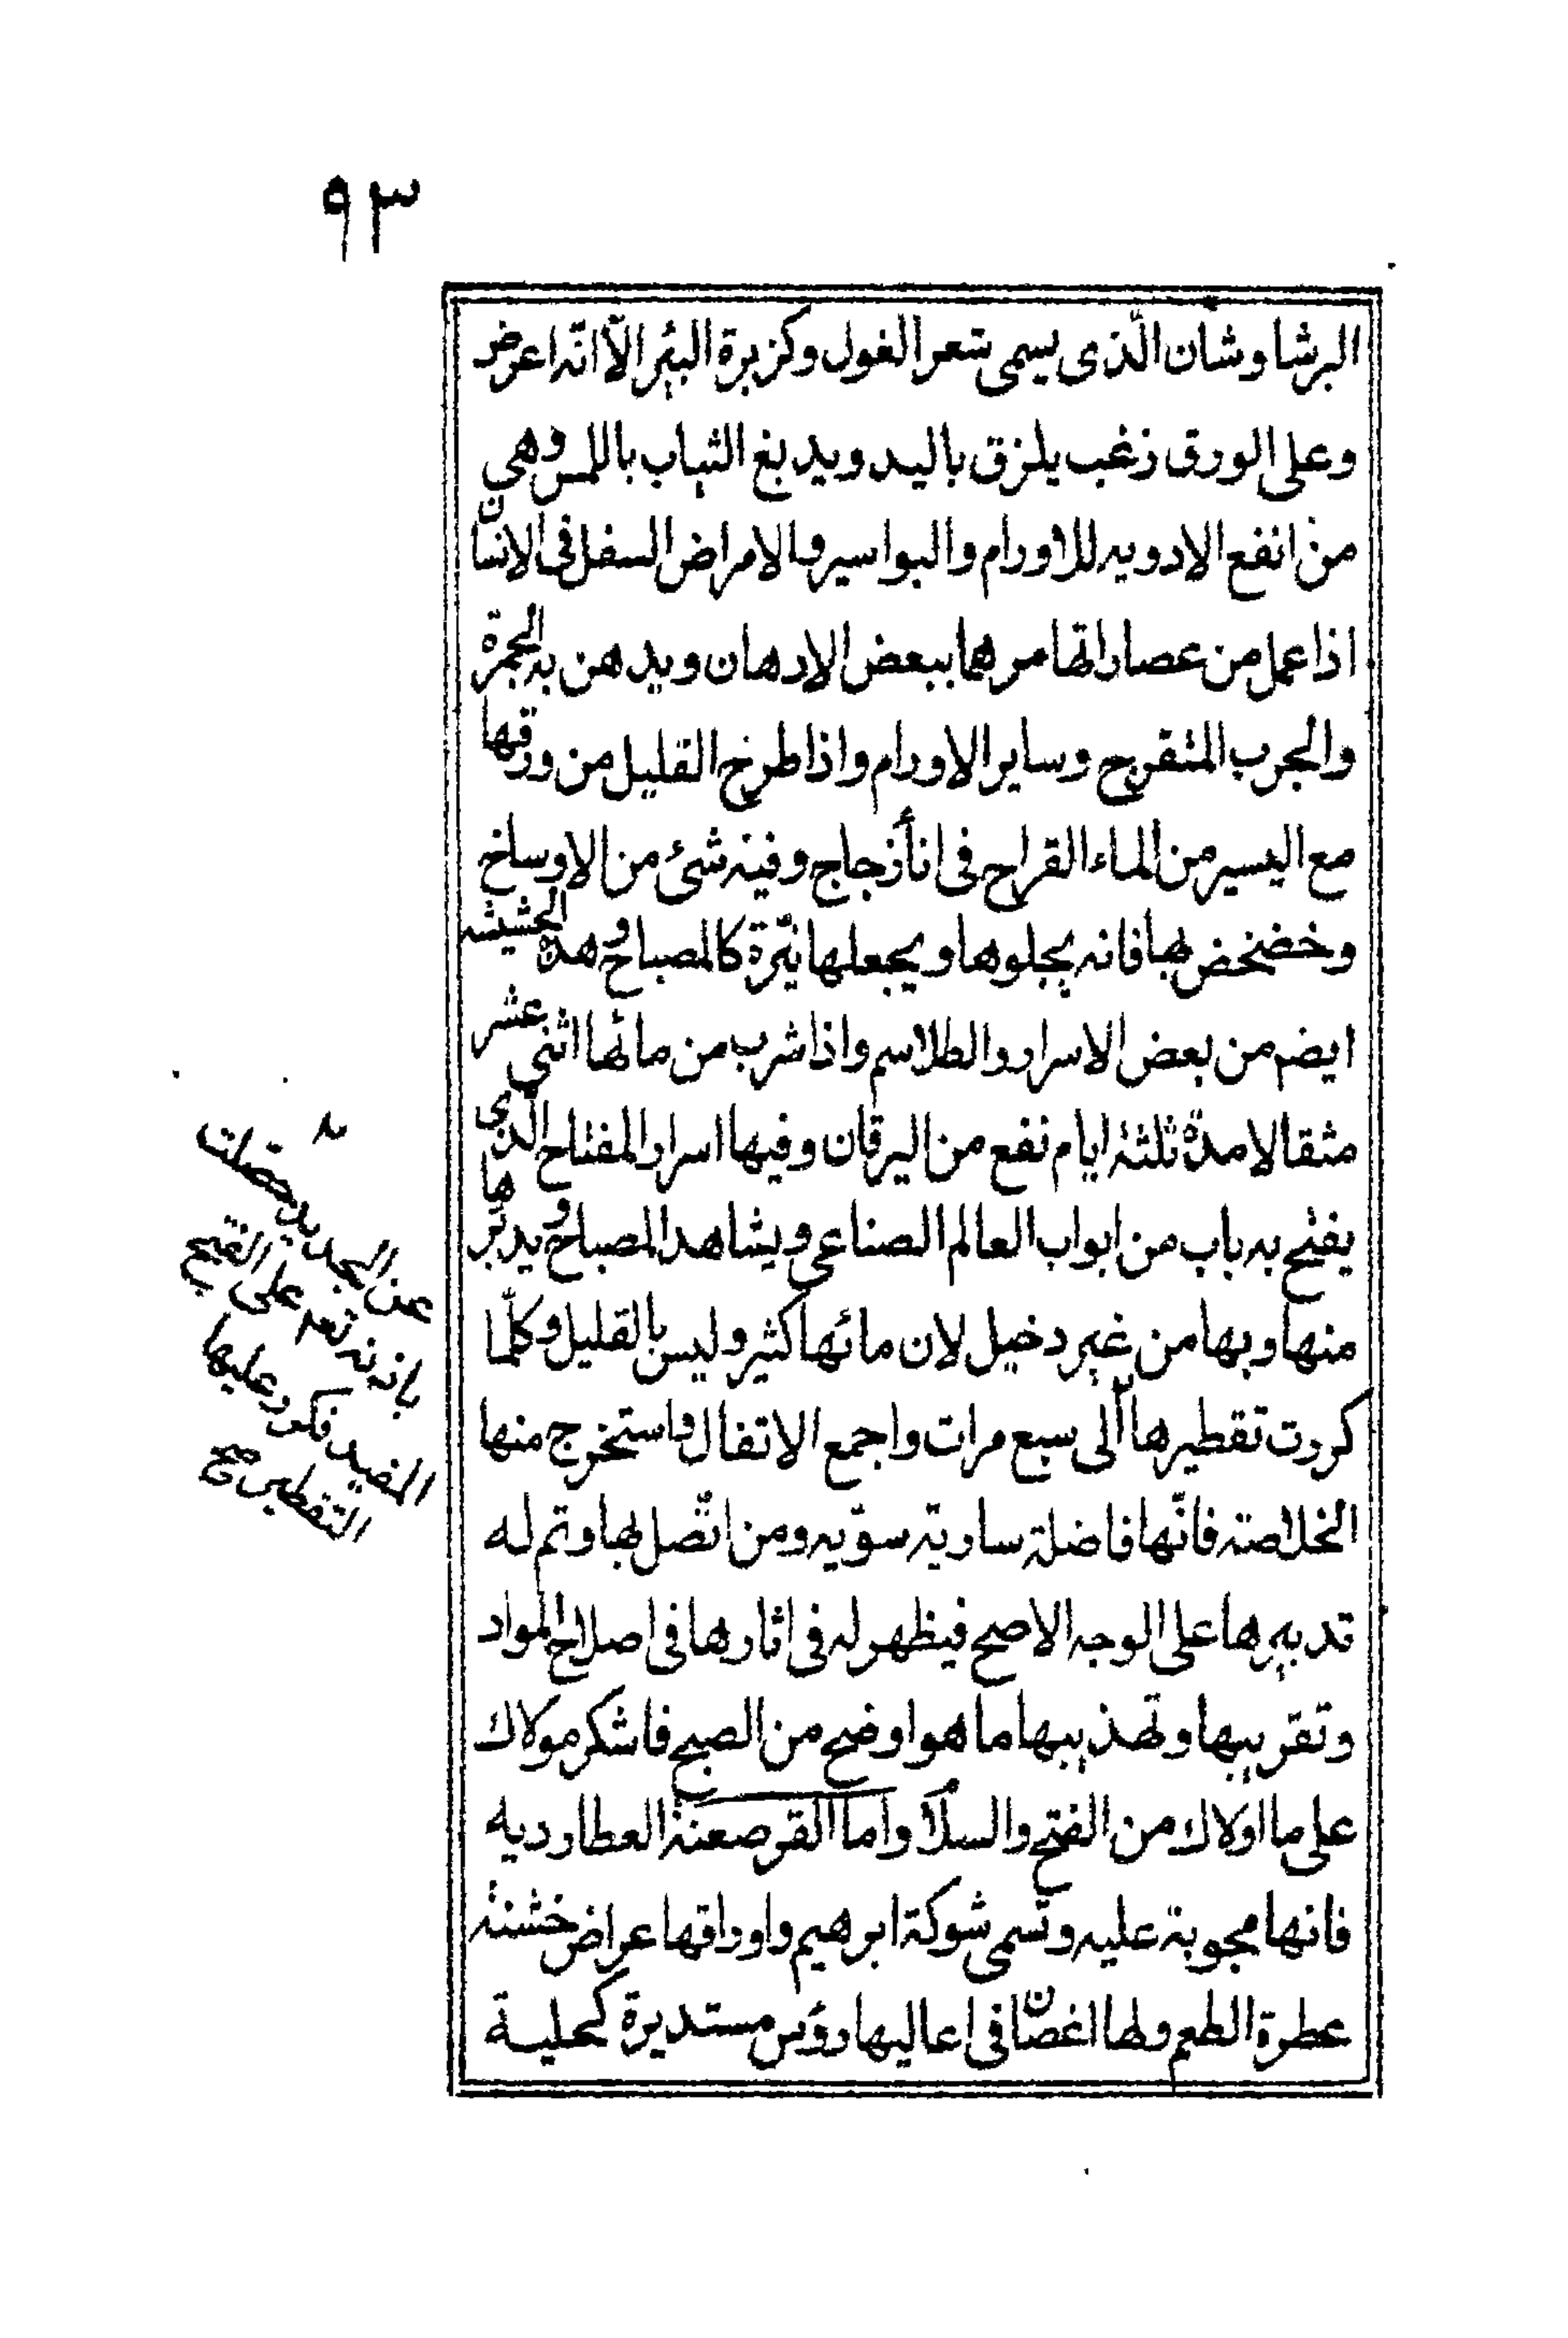 ٩٣
البرشاوشان الّذى يسمى شعر الغول وكزبرة البئر الّا انّه اعرض
وعلى الورق زغب يلزق باليد ويدبغ الثياب باللمس وهي
من انفع الادويه للاورام والبواسير والامراض السفل فى الانسان
اذا عمل من عصاراتها مرهما ببعض الادهان ويدهن به الجمرة
والجرب المتقرح وساير الاورام واذا طرح القليل من ورقها
مع اليسير من الماء القراح فى انأ زجاج وفيه شئ من الاوساخ
وخضخض بها فانه يجلوها ويجعلها نيّرة كالمصباح وهذه الحشيشه
ايضم من بعض الاسرار والطلاسم واذا شرب من مائها اثنى عشر
مثقالا مدّة ثلثة ايام نفع من اليرقان وفيها اسرار المفتاح الّذى
يفتح به باب من ابواب العالم الصناعى ويشاهد المصباح ويدبّرها
منها وبها من غير دخيل لان مائها كثير وليس بالقليل وكلّما
كررت تقطيرها الى سبع مرات واجمع الاتفال واستخرج منها
الخلاصته فانّها فاضلة سارية سوّيه ومن اتّصل بها وتم له
تدبيرها على الوجه الاصح فيظهر له فى اثارها فى اصلاح المواد
وتقريبها وتهذيبها ما هو اوضح من الصبح فاشكر مولاك
على ما اولاك من الفتح والسلام واما القرصعنة العطارديه
فانها مجوبة عليه وتسمى شوكة ابرهيم واوراقها عراض خشنة
عطرة الطعم ولها اغصان فى اعاليها رؤس مستديرة كحلية
على الفتح
المفيد فكرر عليها
التقطير صح